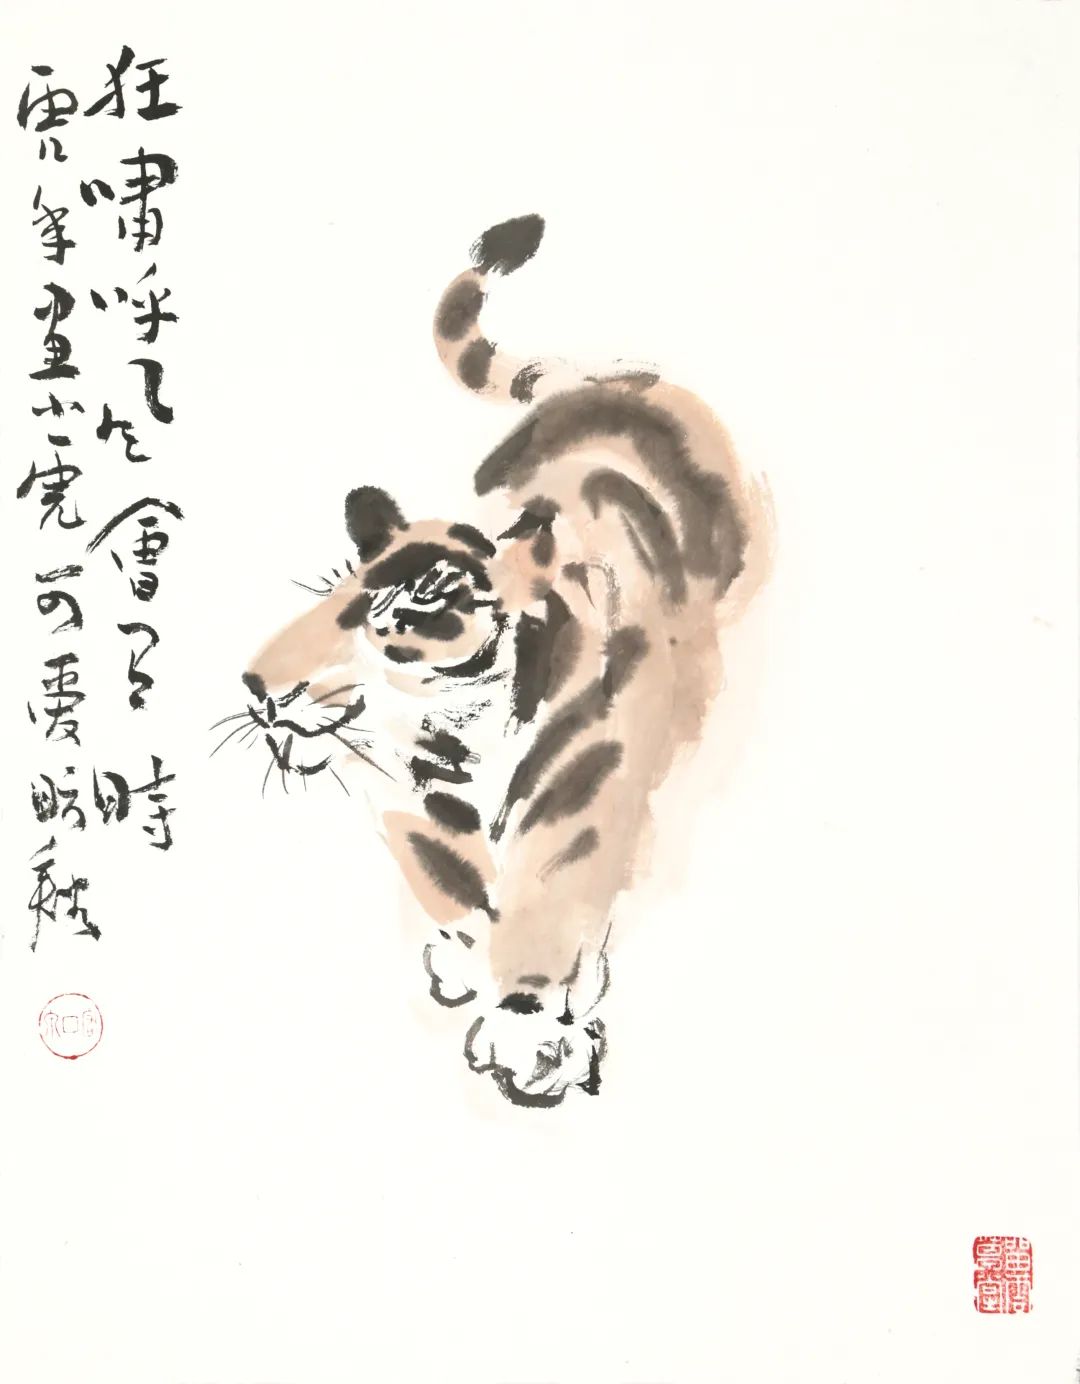 狂嘯呼風會有時
虎年畫小虎可愛